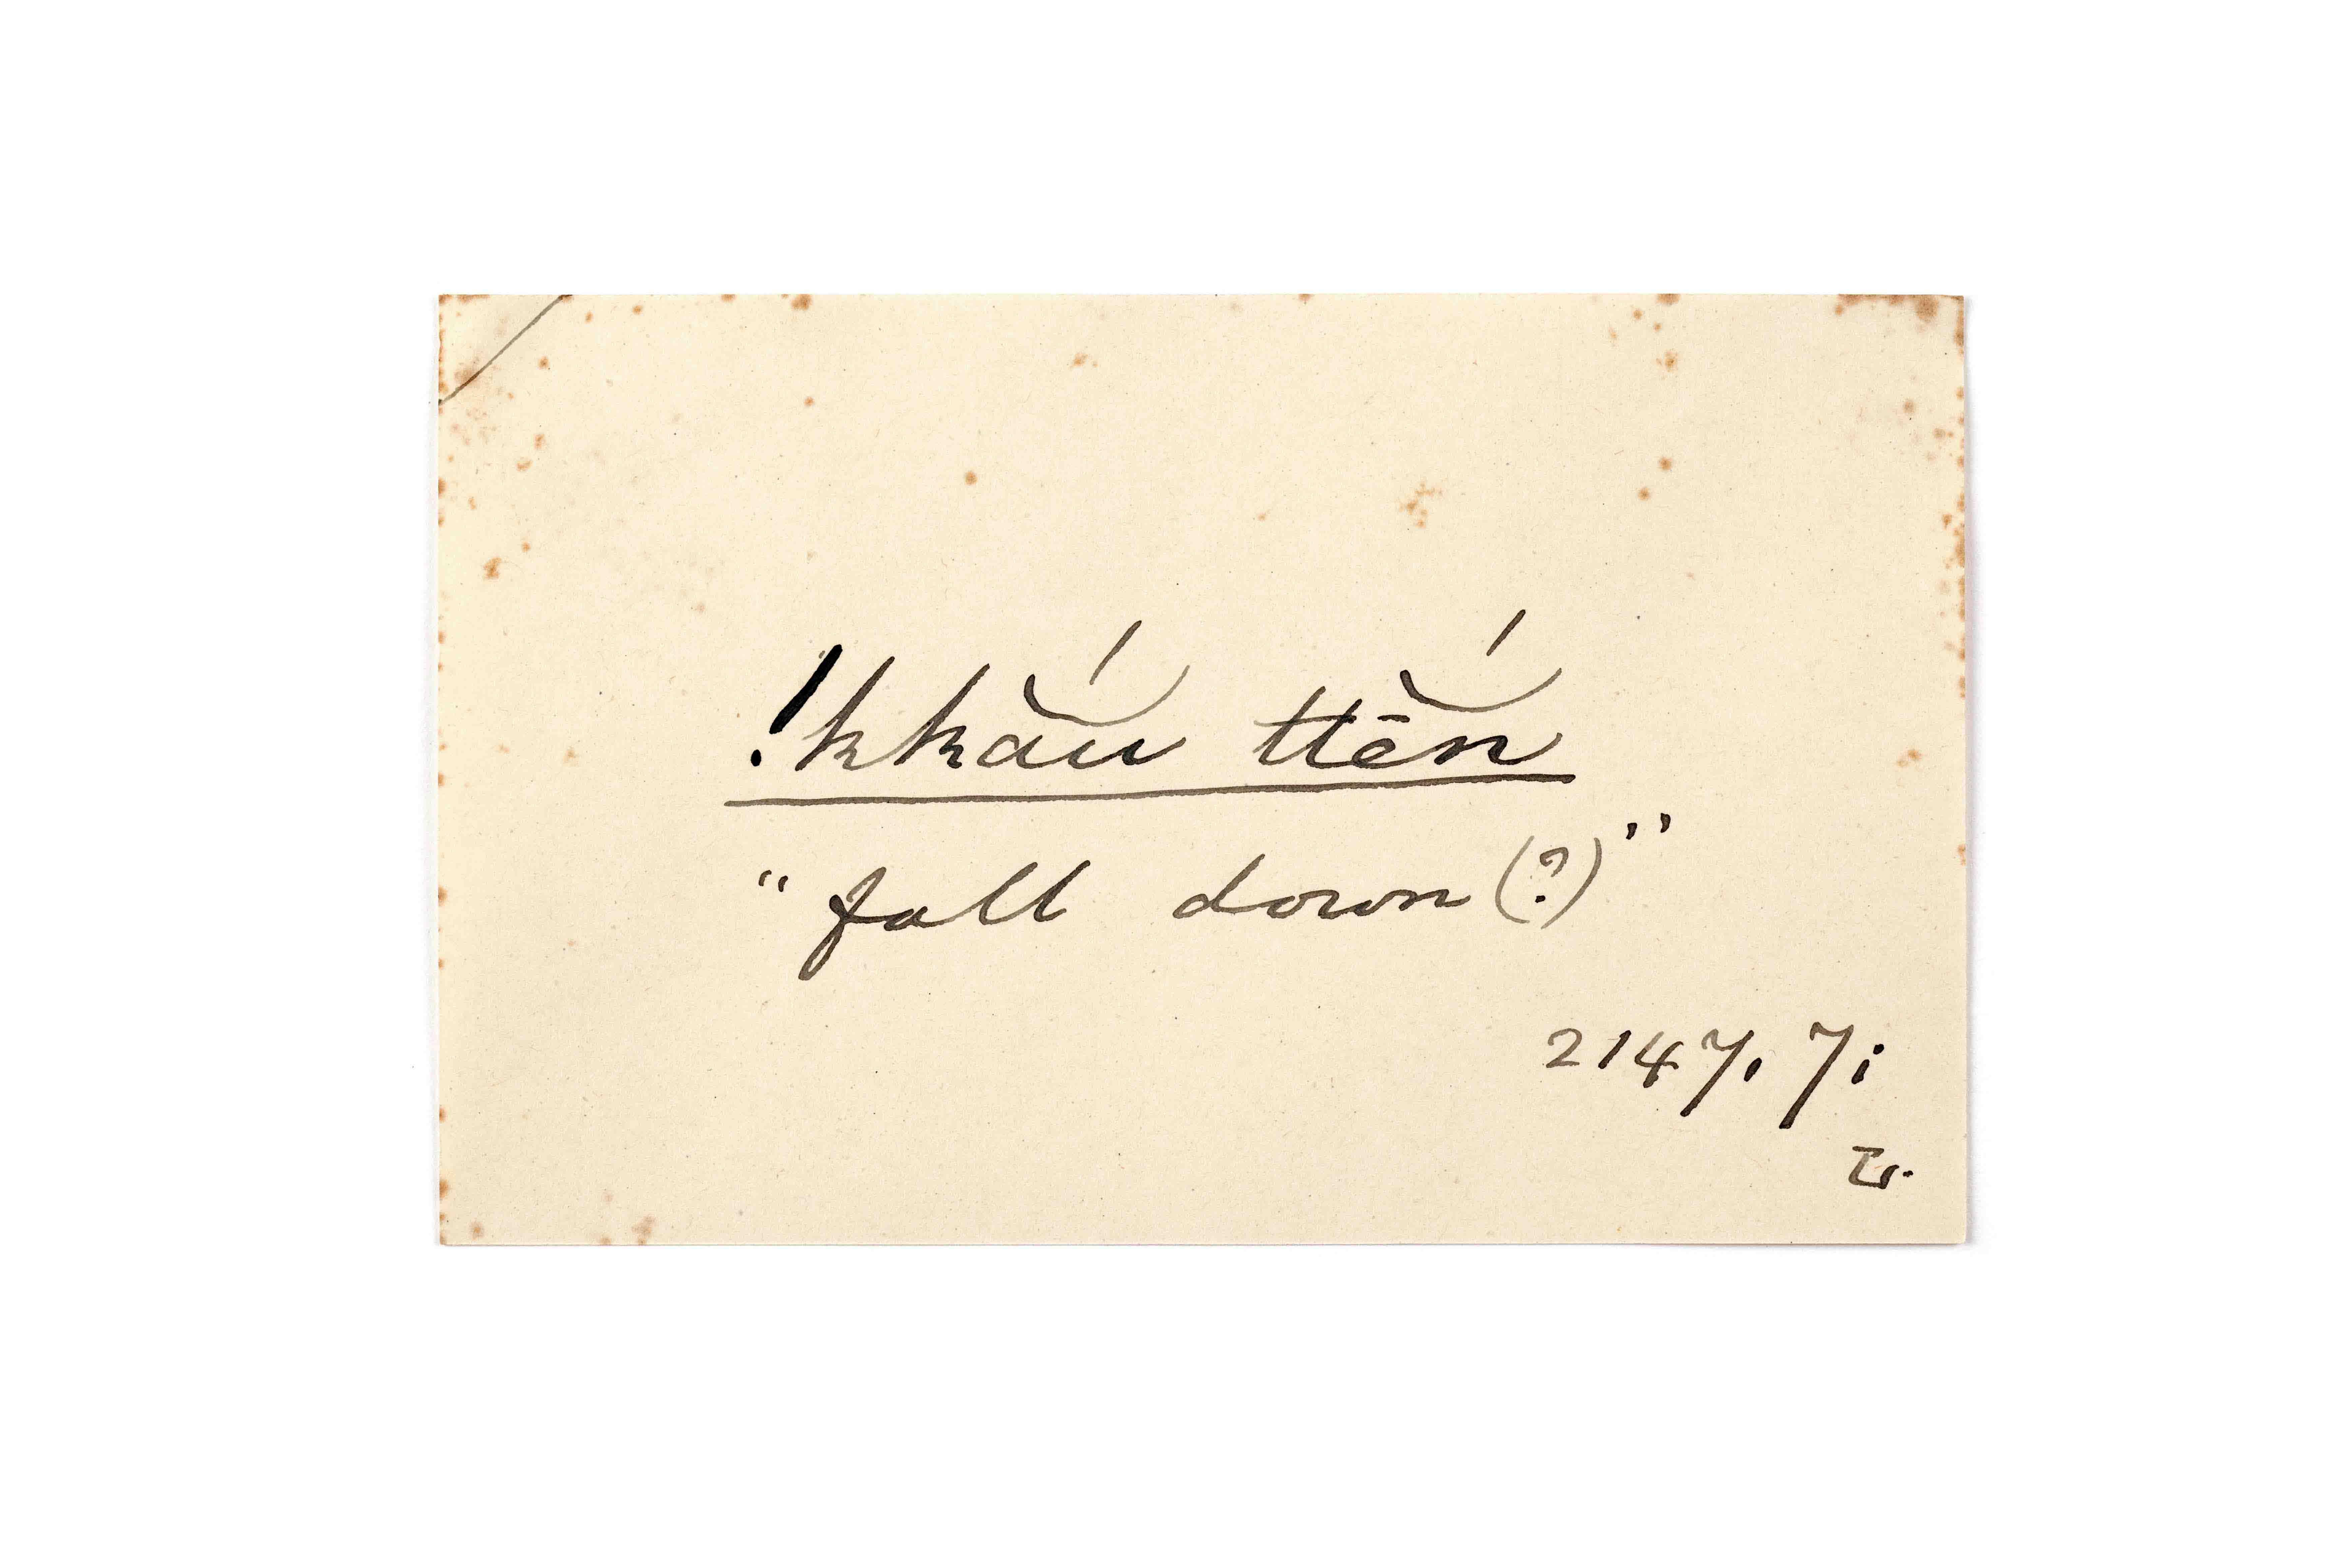 !kkăŭ́ ttē̆́n
"fall down (?)"
2147. 7;